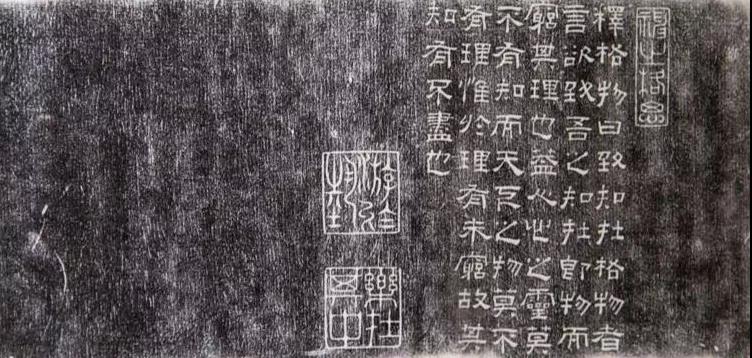 釋格物曰致知在格物者
言欲致吾之知在即物而
窮其理也蓋人心之靈莫
不有知而天下之物莫不
有理惟於理有未窮故其
知有不盡也
樂在其中